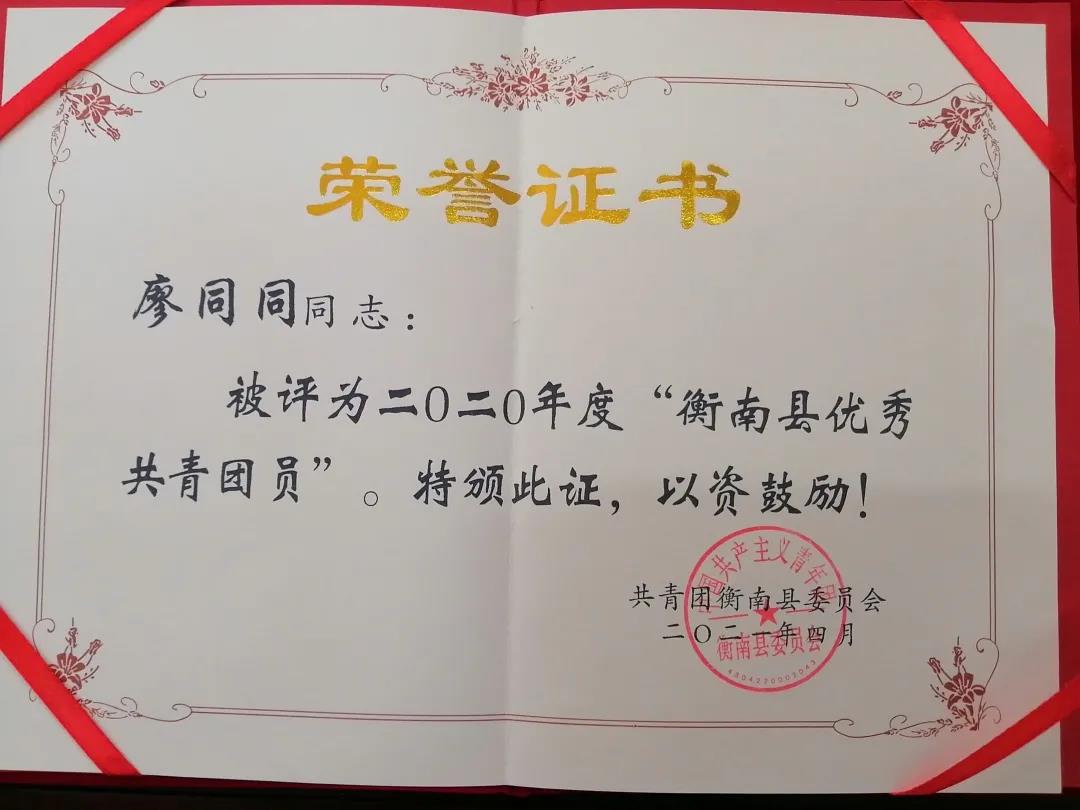 荣誉证书
廖同同同志：
被评为二〇二〇年度“衡南县优秀
共青团员”。特颁此证，以资鼓励！
共青团衡南县委员会
二〇二一年四月
中国共产主义青年团
衡南县委员会